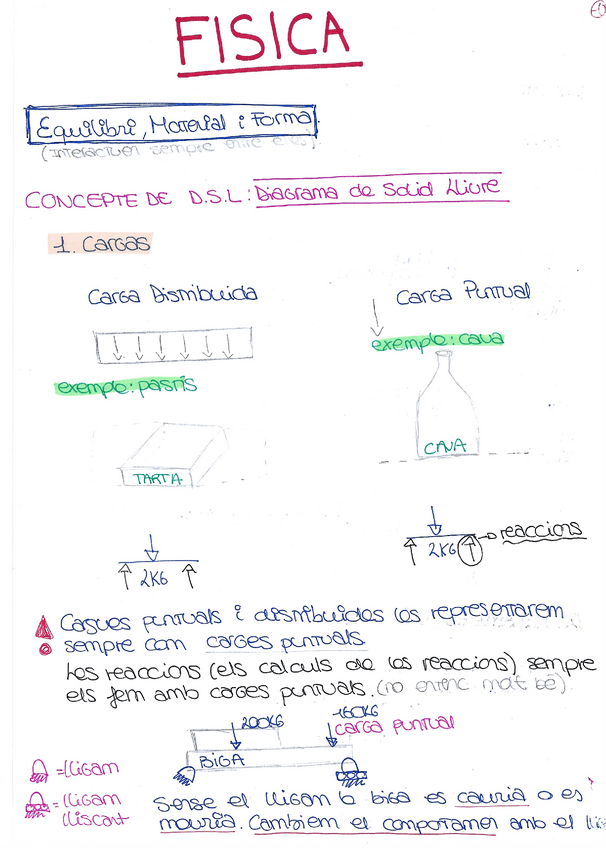 FISICA
Equilibri, Material i Forma
(Interactuen sempre entre ells).
CONCEPTE DE D.S.L: Diagrama de Solid Lliure
1. Cargas
Carga Distribuida
Carga Puntual
exemple: cava
exemple: pastís
CAVA
TARTA
reaccions
2KG
2KG
Cagues puntuals i distribuides les representarem
sempre com carges puntuals.
Les reaccions (els calculs de les reaccions) sempre
els fem amb carges puntuals. (no entenc mol bé)
200KG
160KG
carga puntual
BIGA
=lligam
=lligam
lliscant
Sense el lligam la biga es cauria o es
mouria. Cambiem el comportament amb el